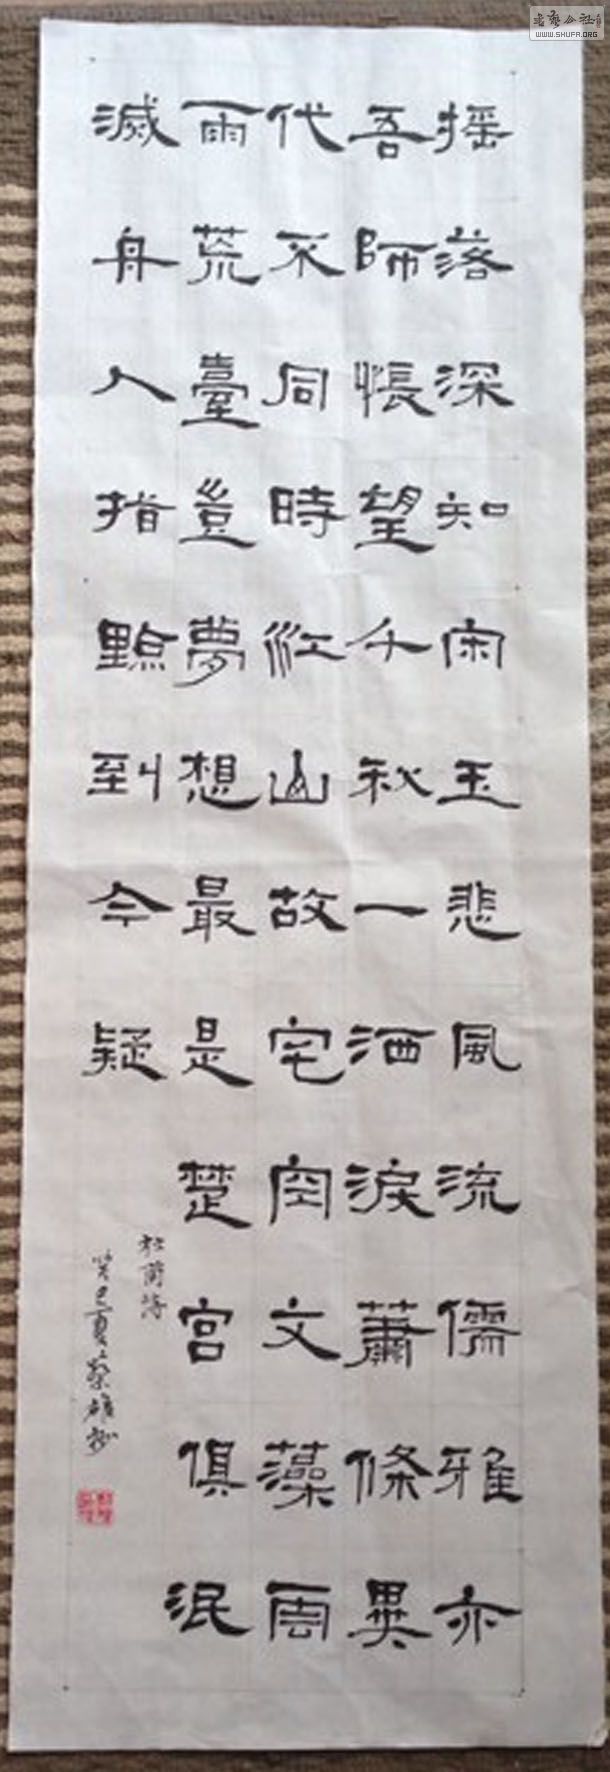 搖落深知宋玉悲風流儒雅亦
吾師悵望千秋一洒淚蕭條異
代不同時江山故宅空文藻雲
雨荒臺豈夢想最是楚宮俱泯
滅舟人指點到今疑
杜甫詩
癸巳夏蔡雄
书艺公社
WWW.SHUFA.ORG